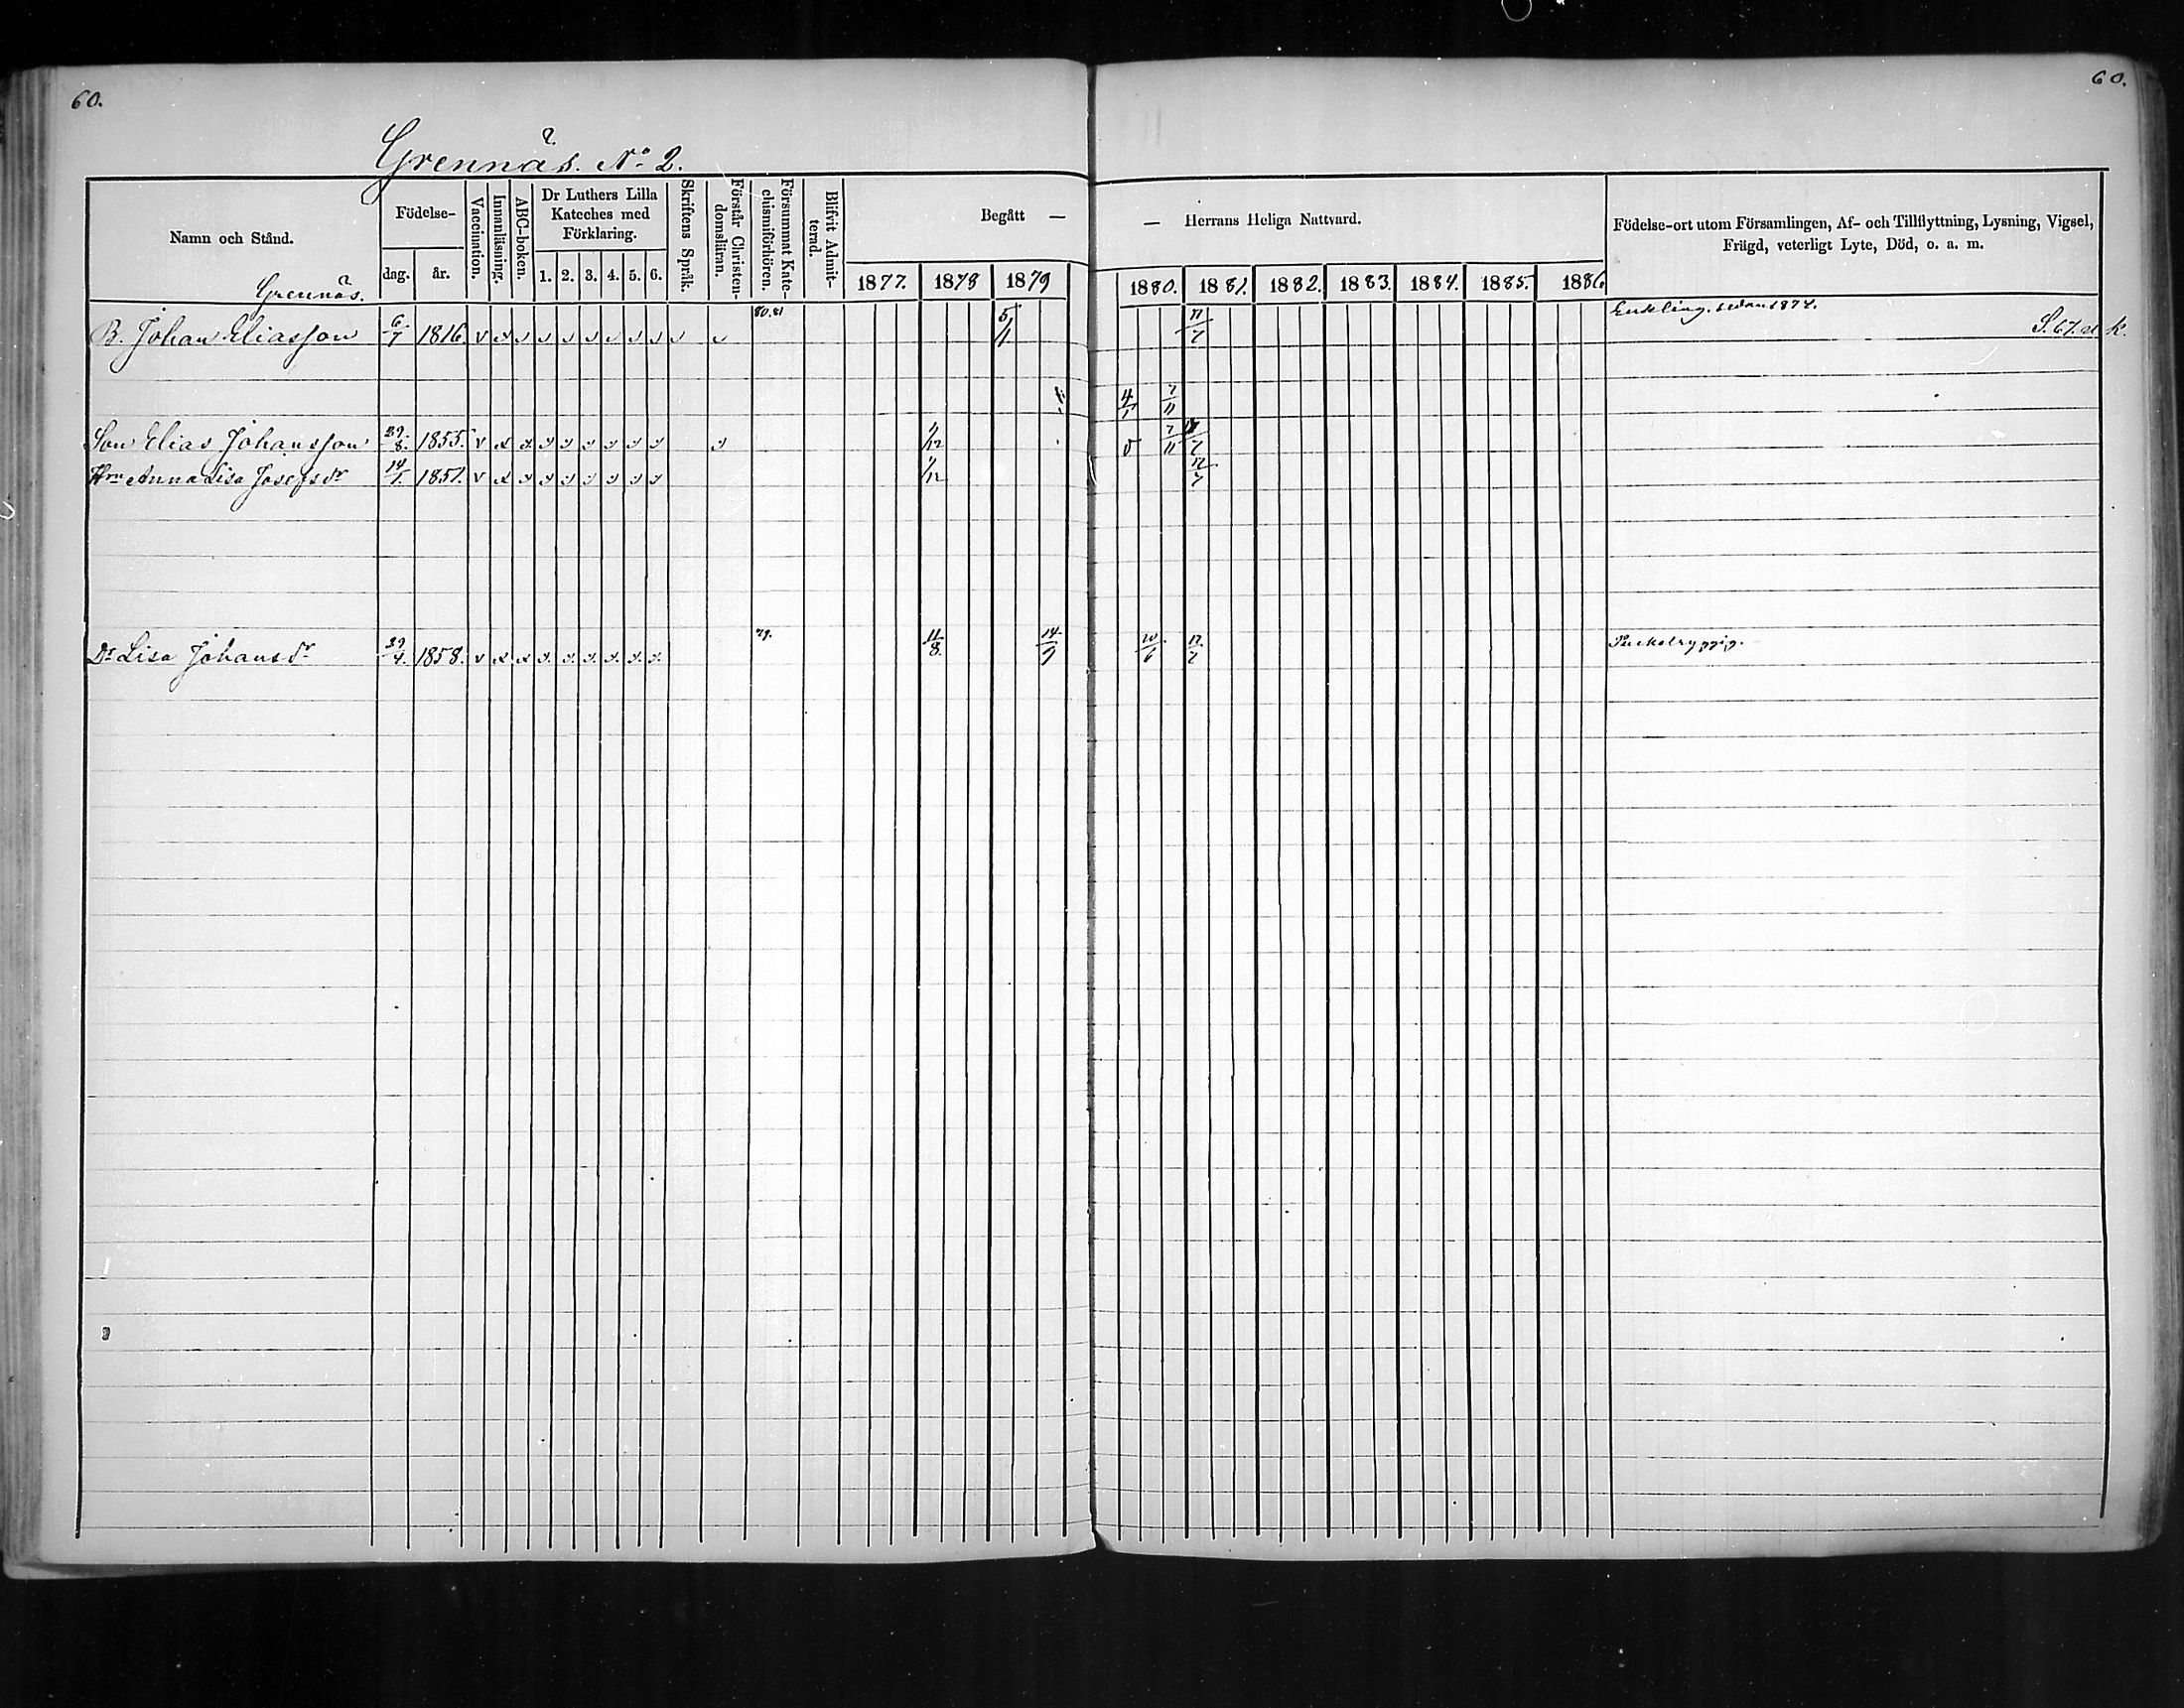 60.
60.
Grennäs. No 2.
Namn och Stånd.
Födelse-
dag.
år.
Vaccination.
Innanläsning.
ABC-boken.
Dr Luthers Lilla
Kateches med
Förklaring.
1. 2. 3. 4. 5. 6.
Skriftens Språk.
Förstår Christen-
domsläran.
Försummat Kate-
chismiförhören.
Blifvit Admit-
terad.
Begått —
— Herrans Heliga Nattvard.
1877. 1878 1879 1880. 1881. 1882. 1883. 1884. 1885. 1886.
Födelse-ort utom Församlingen, Af- och Tillflyttning, Lysning, Vigsel,
Frägd, veterligt Lyte, Död, o. a. m.
Grennäs.
B. Johan Eliasson 6/7 1816. v 80.81 5/1 17/7 Enkling. sedan 1874. S. 67.
4/1 7/11
Son Elias Johansson 29/8. 1855. v 1/12 7/11 17/7
Hru Anna Lisa Josefsdr 14/1. 1851. v 1/12 17/7
Dr Lisa Johansdr 29/4. 1858. v 79. 11/8 14/9 20/6 17/7 Puckelryggig.